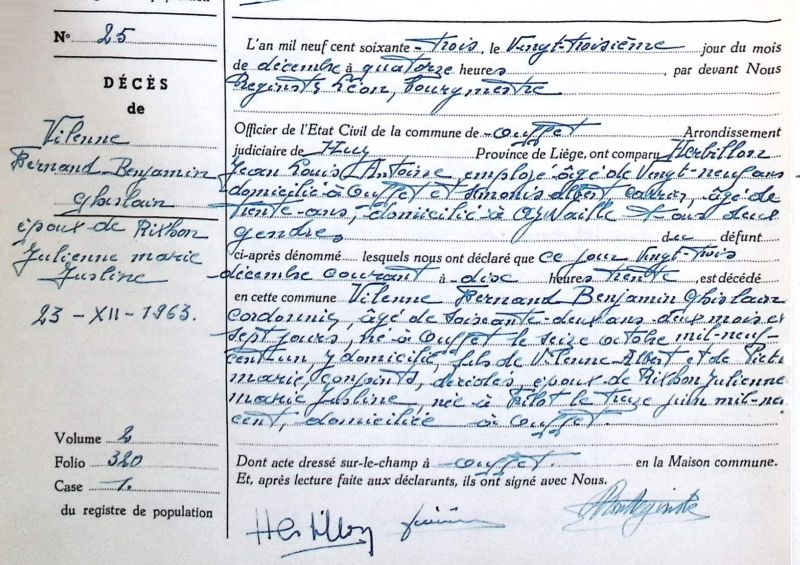 N° 25
DÉCÈS
de
Vilenne
Fernand Benjamin
Ghislain
époux de Rixhon
Julienne Marie
Justine
23 - XII - 1963.
Volume 2
Folio 320
Case 1.
du registre de population
L'an mil neuf cent soixante-trois, le Vingt-troisième jour du mois
de décembre à quatorze heures , par devant Nous
Léon, Bourgmestre
Officier de l'Etat Civil de la commune de Ouffet Arrondissement
judiciaire de Huy Province de Liège, ont comparu Herbillon
Jean Louis Antoine, employé âgé de Vingt-neuf ans
domicilié à Ouffet et Simonis Albert carrier, âgé de
trente ans, domicilié à Aywaille tous deux
gendres du défunt
ci-après dénommé lesquels nous ont déclaré que ce jour Vingt-trois
décembre courant à dix heures trente , est décédé
en cette commune Vilenne Fernand Benjamin Ghislain
cordonnier, âgé de soixante-deux ans deux mois et
sept jours, né à Ouffet le seize octobre mil-neuf-
cent un, y domicilié, fils de Vilenne Albert et de
Marie, conjoints, décédés, époux de Rixhon Julienne
Marie Justine, née à Filot le treize juin mil-neuf
cent, domiciliée à Ouffet.
Dont acte dressé sur-le-champ à Ouffet. en la Maison commune.
Et, après lecture faite aux déclarants, ils ont signé avec Nous.
Herbillon